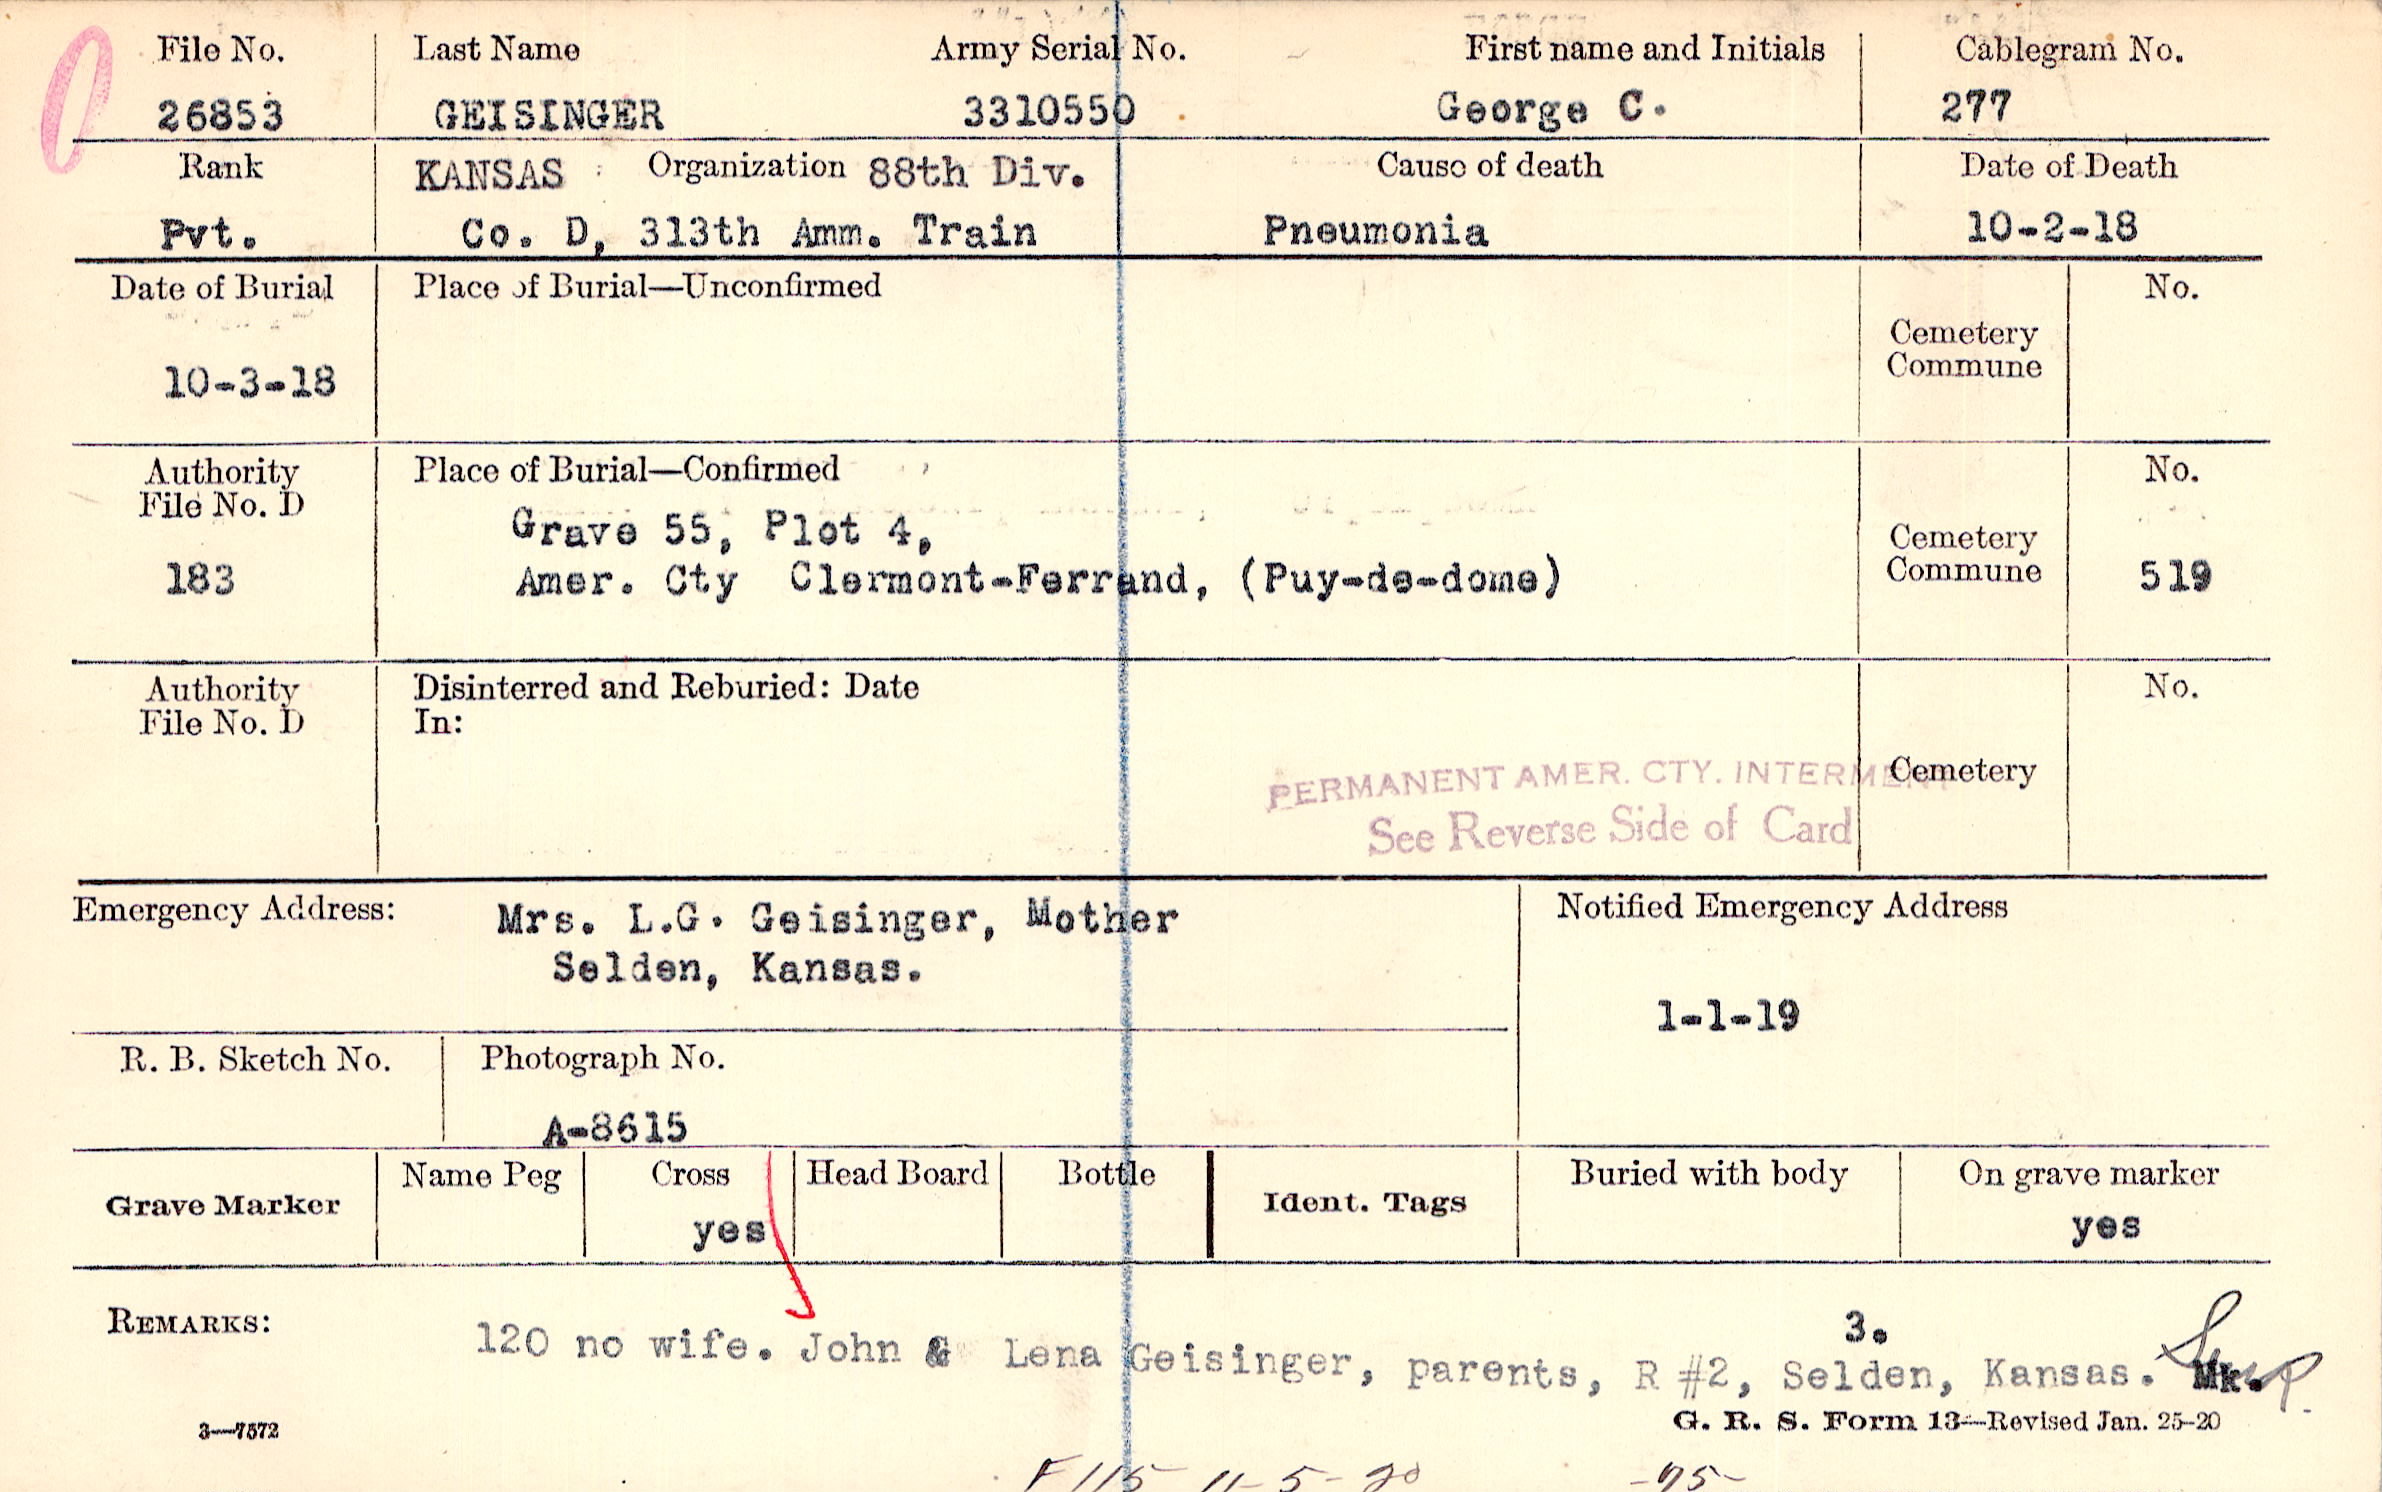 File No. Last Name Army Serial No. First name and Initials Cablegram No.
26853 GEISINGER 3310550 George C. 277
Rank KANSAS Organization 88th Div. Cause of death Date of Death
Pvt. Co. D, 313th Amm. Train Pneumonia 10-2-18
Date of Burial Place of Burial—Unconfirmed No.
Cemetery
Commune
10-3-18
Authority Place of Burial—Confirmed No.
File No. D
Grave 55, Plot 4,
Cemetery
183 Amer. Cty Clermont-Ferrand, (Puy-de-dome) Commune 519
Authority Disinterred and Reburied: Date No.
File No. D In:
PERMANENT AMER. CTY. INTERMENT Cemetery
See Reverse Side of Card
Emergency Address: Mrs. L.G. Geisinger, Mother Notified Emergency Address
Selden, Kansas.
1-1-19
R. B. Sketch No. Photograph No.
A-8615
Name Peg Cross Head Board Bottle Buried with body On grave marker
Grave Marker Ident. Tags
yes yes
REMARKS: 3.
120 no wife. John & Lena Geisinger, parents, R #2, Selden, Kansas. Mk.
3—7572 G. R. S. Form 13—Revised Jan. 25-20
F115 11-5-20 -75-